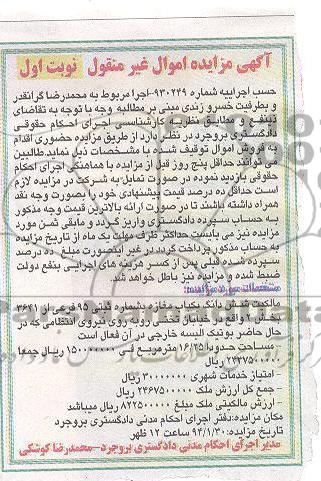 آگهی مزایده اموال غیر منقول نوبت اول
حسب اجراییه شماره ۹۳۰۲۴۹-اجرا مربوط به محمدرضا گرانقدر
و بطرفیت خسرو زندی مبنی بر مطالبه وجه با توجه به تقاضای
ذینفع و مطابق نظریه کارشناسی اجرای احکام حقوقی
دادگستری بروجرد در نظر دارد از طریق مزایده حضوری اقدام
به فروش اموال توقیف شده با مشخصات ذیل نماید.طالبین
می توانند حداقل پنج روز قبل از مزایده با هماهنگی اجرای احکام
حقوقی بازدید نموده در صورت تمایل به شرکت در مزایده لازم
است حداقل ده درصد قیمت پیشنهادی خود را بصورت وجه نقد
همراه داشته باشند تا در صورت ارائه بالاترین قیمت وجه مذکور
به حساب سپرده دادگستری واریز گردد و مابقی ثمن مورد
مزایده نیز می بایست حداکثر ظرف مهلت یک ماه از تاریخ مزایده
به حساب مذکور پرداخت گردد در غیر اینصورت مبلغ ده درصد
سپرده شده قبلی پس از کسر هزینه های اجرایی بنفع دولت
ضبط شده و مزایده نیز باطل خواهد شد.
مشخصات مورد مزایده:
مالکیت شش دانگ یکباب مغازه بشماره ثبتی ۹۵ فرعی از ۳۶۴۱
بخش ۱ واقع در خیابان تختی روبه روی نیروی انتظامی که در
حال حاضر بوتیک البسه خارجی در آن فعال است
- مساحت حدودا ۱۶/۲۵ مترمربع فی ۱۵۰۰۰۰۰۰۰ ریال جمعا
۲۴۳۷۵۰۰۰۰۰ ریال
- امتیاز خدمات شهری ۳۰۰۰۰۰۰۰ ریال
- جمع کل ارزش ملک ۲۴۶۷۵۰۰۰۰۰ ریال
- ارزش مالکیتی ملک مبلغ ۸۲۲۵۰۰۰۰۰ ریال میباشد
مکان مزایده:دفتر اجرای احکام مدنی دادگستری بروجرد
تاریخ مزایده: ۹۴/۱/۳۰ ساعت ۱۲ ظهر
مدیر اجرای احکام مدنی دادگستری بروجرد-محمدرضا کوشکی